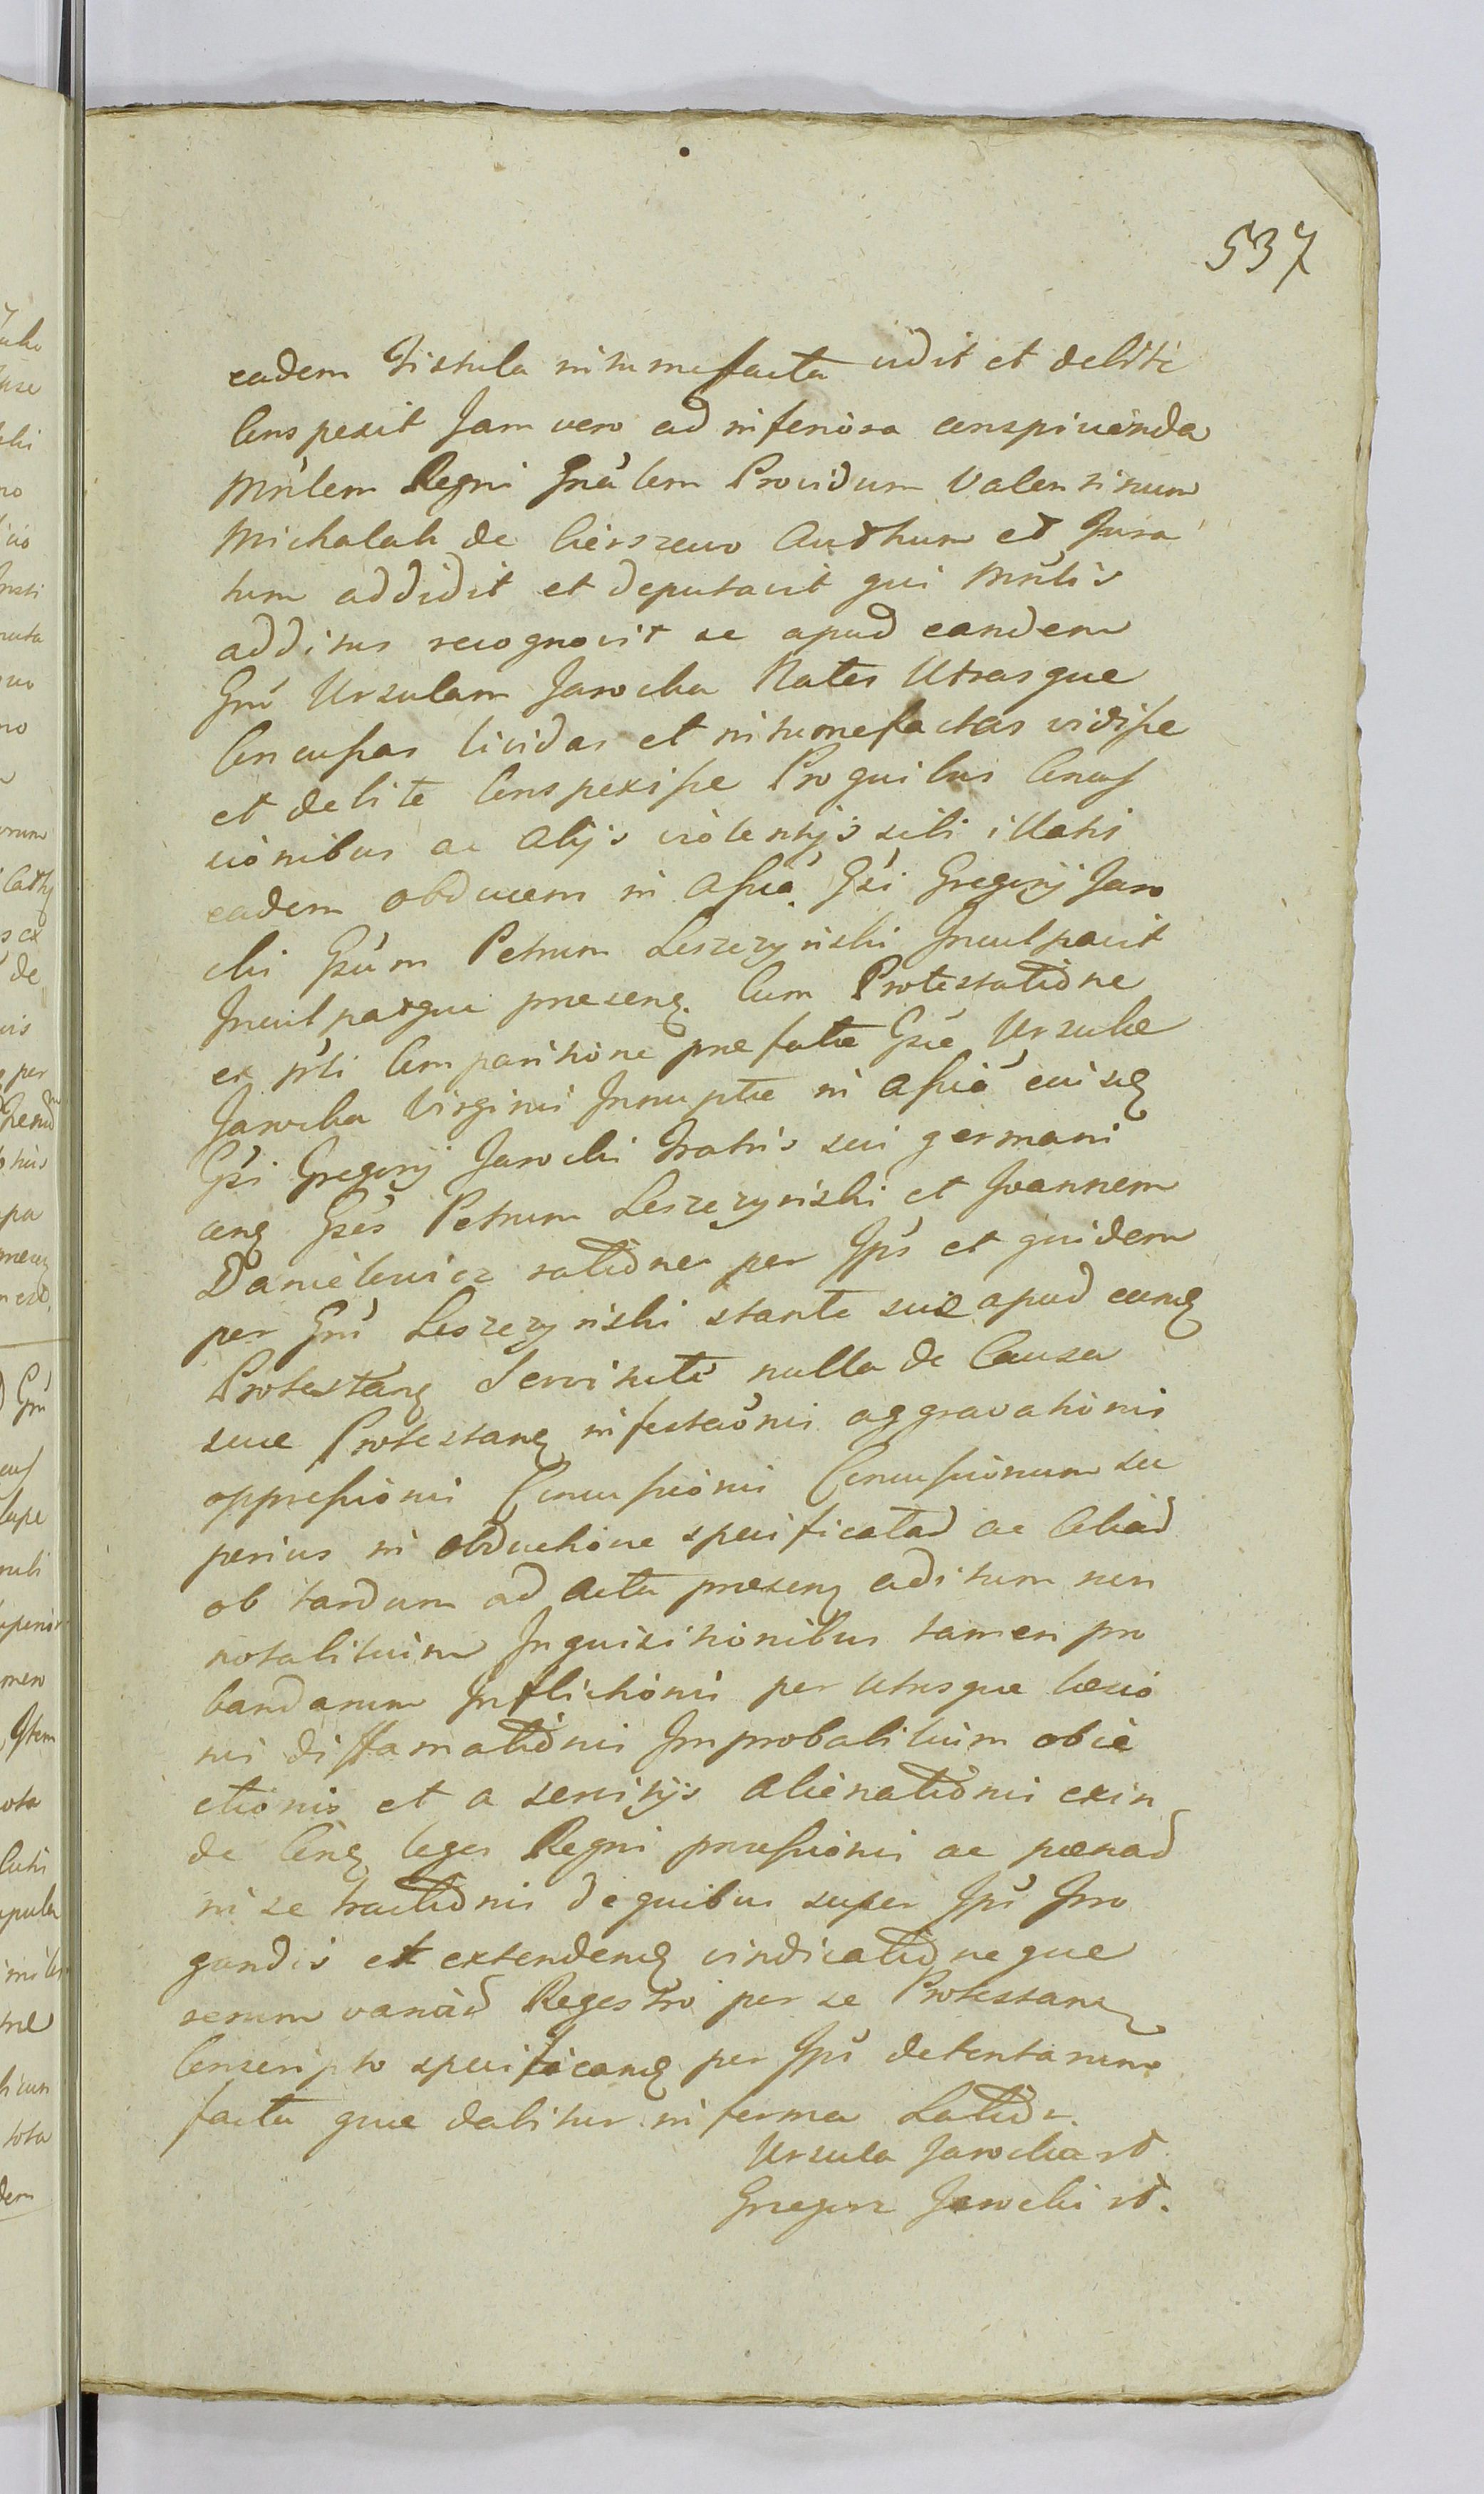 537
eadem Fistula intumefacta vidit et debite
Conspexit Jam vero ad inferiora conspicienda
Mnlem Regni Gnalem Providum Valentinum
Michalak de Cierszewo Authum et Jura
tum addidit et deputavit qui Mnlis
additus recognovit se apud eandem
Gnu Ursulam Jarocka Nates Utrasque
Concussas lividas et intumefactas vidisse
et debite Conspexisse Pro quibus Concus
sionibus ac Alijs violentijs sibi illatis
eadem obducens in Assia Gsi Gregorij Jaro
cki Gsum Petrum Leszczynski Inculpavit
Inculpatque praesenq. Cum Protestatione
ex pti Comparitione praefatae Gsae Ursulae
Jarocka Virginis Innuptae in Assia eiusq
Gsi Gregorij Jarocki Fratris sui germani
conq Gsos Petrum Leszczynski et Joannem
Danielewicz ratione per Ips et quidem
per Gnu Leszczynski stante sui apud eumq
Protestanq Servitute nulla de Causa
suae Protestanq infestaonis aggravationis
oppressionis Concussionis Concussionum su
perius in obductione specificatad ac Aliad
ob tardum ad Acta praesenq aditum non
notabilium Inquisitionibus tamen pro
bandarum Inflictionis per Utrosque laesio
nis diffamationis Improbabilium obie
ctionis et a servitijs alienationis exin
de Conq leges Regni processionis ac paenad
in se tractionis de quibus super Ips Irro
gandis et extendenq vindicatione que
rerum variad Regestro per se Protestanq
Conscripto specificanq per Ips detentarum
facta quae dabitur in forma Latior.
Ursula Jarocka
Grzegorz Jarocki